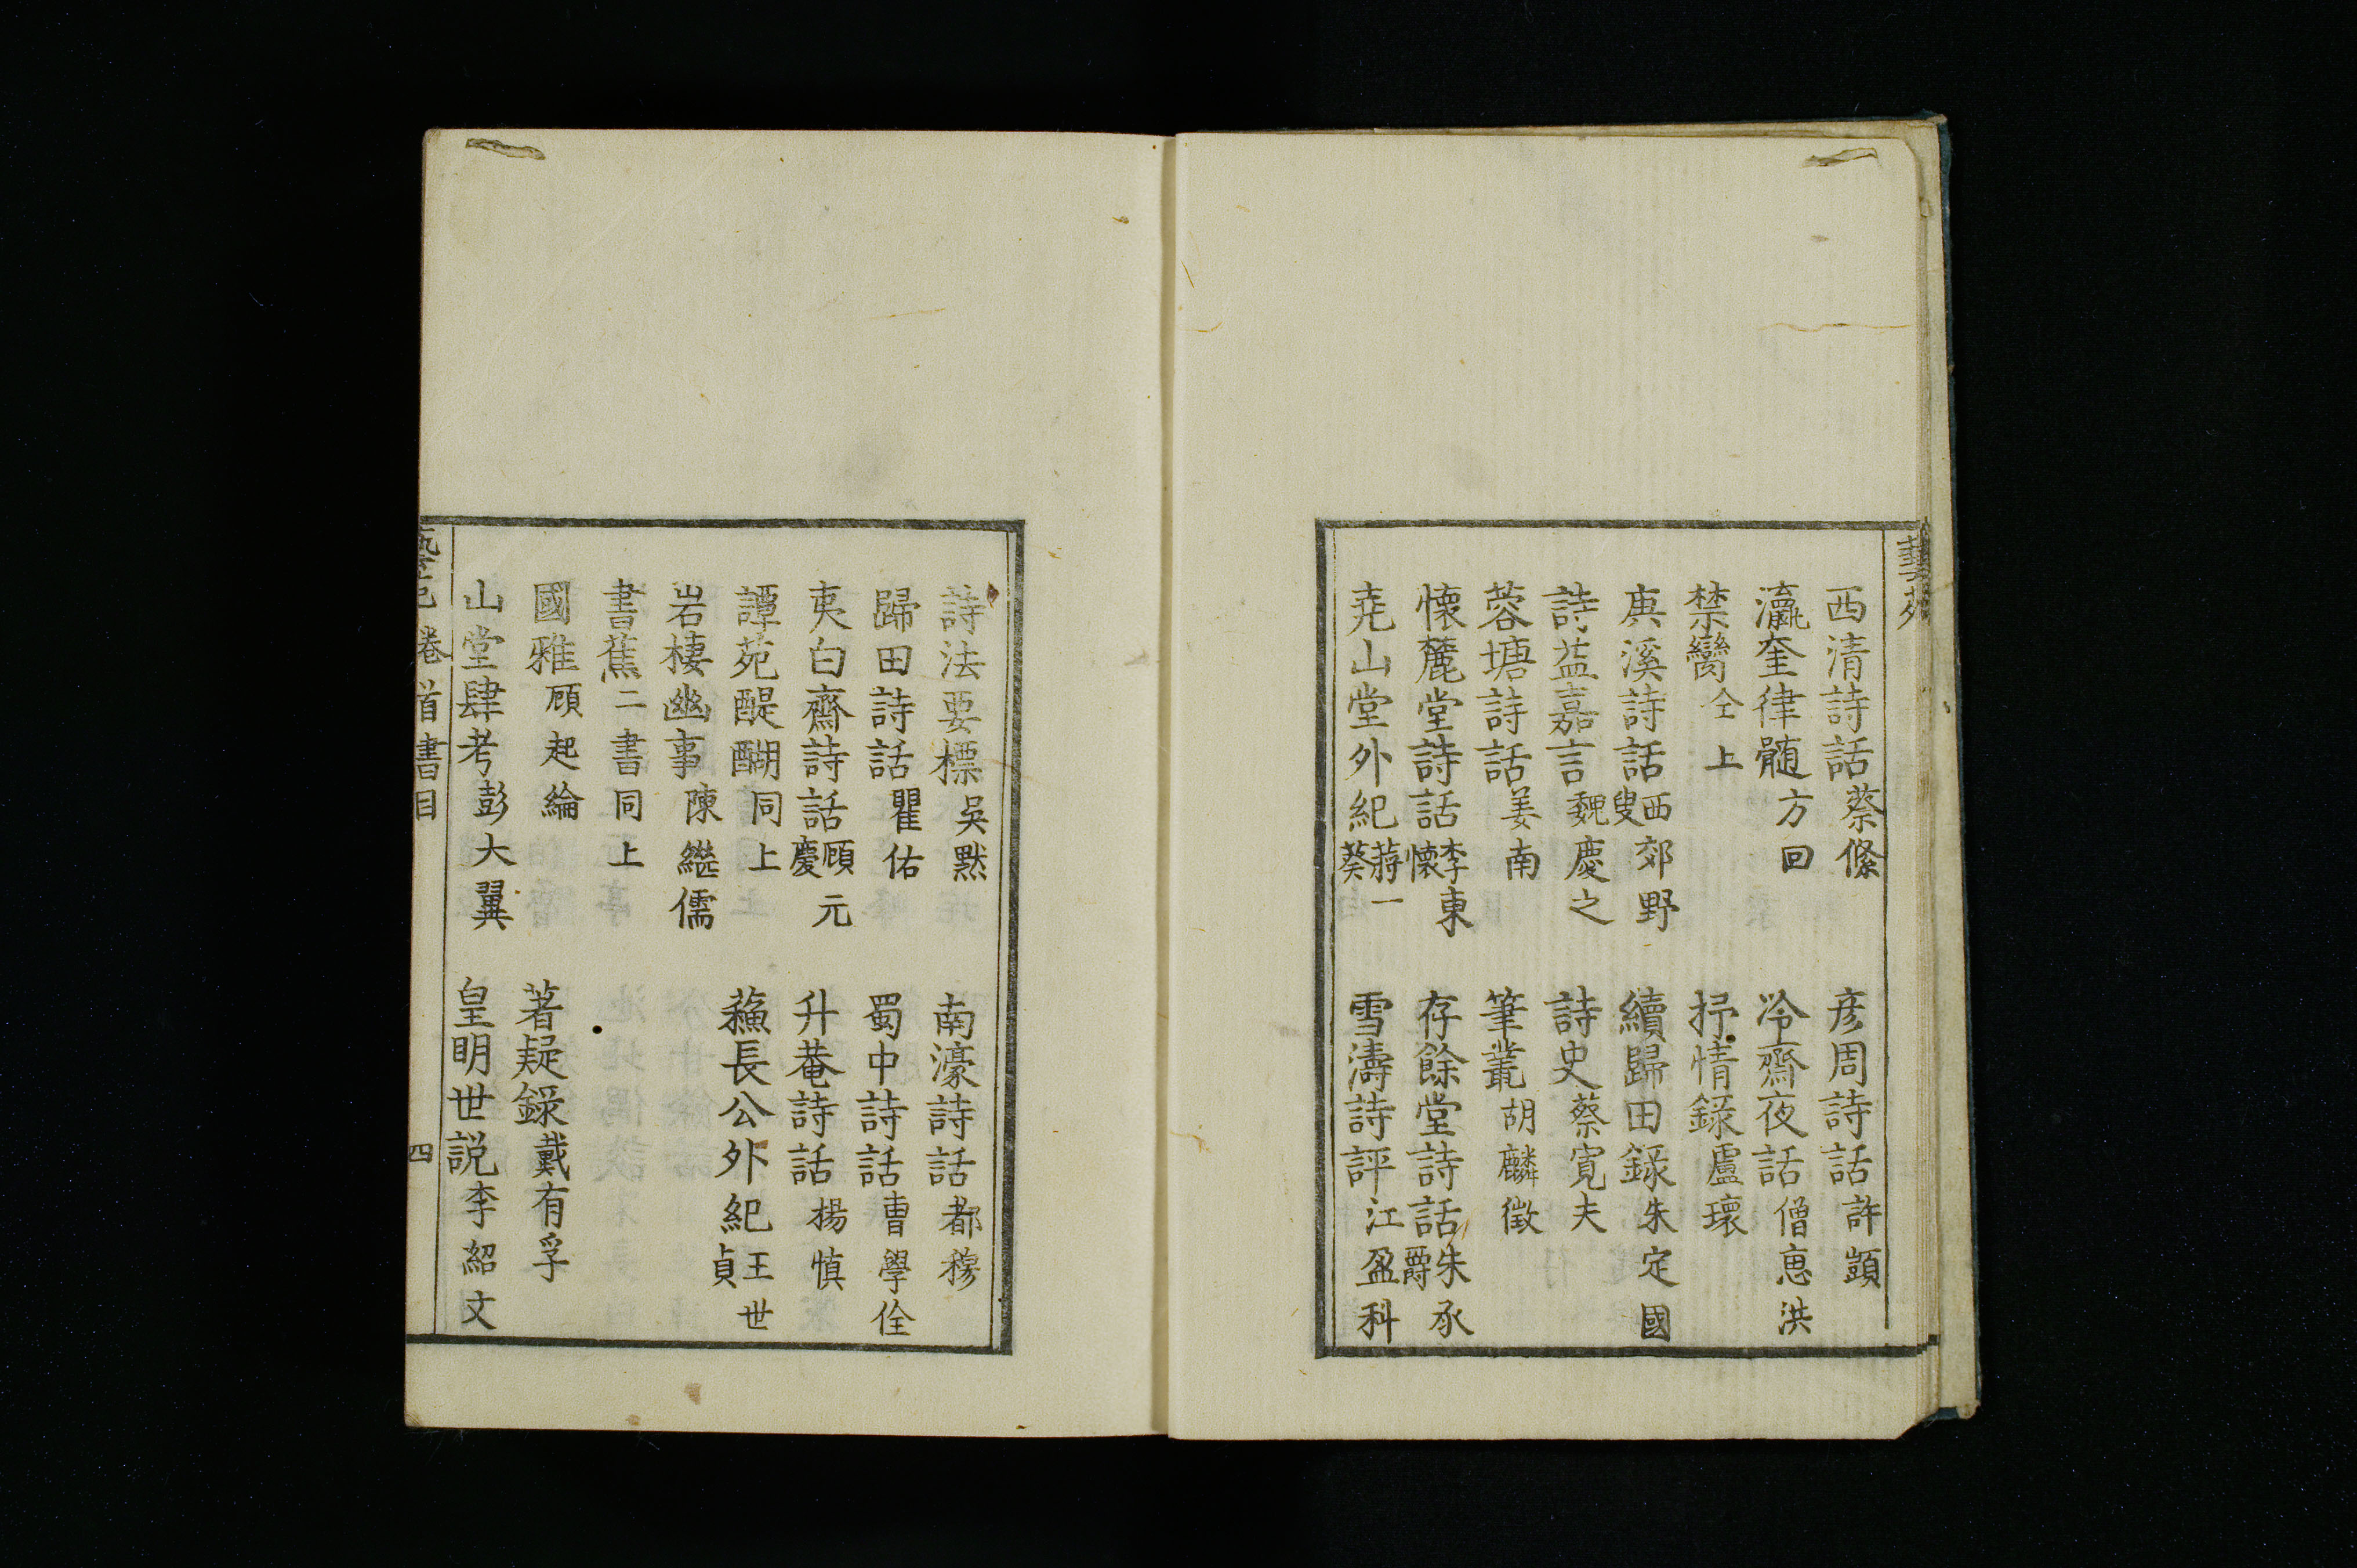 藝苑
西清詩話 蔡絛 彦周詩話 許顗
瀛奎律髄 方回 冷齋夜話 僧恵洪
禁臠 仝上 抒情録 盧瓌
庚溪詩話 西郊野叟 續歸田録 朱定國
詩苑嘉言 魏慶之 詩史 蔡寛夫
蓉塘詩話 姜南 筆叢 胡麟徴
懷麓堂詩話 李東懷 存餘堂詩話 朱承爵
堯山堂外紀 蒋一葵 雪濤詩評 江盈科
詩法要標 吳黙 南濠詩話 都穆
歸田詩話 瞿佑 蜀中詩話 曹學佺
夷白齋詩話 顧元慶 升菴詩話 楊慎
譚苑醍醐 同上 蘓長公外紀 王世貞
岩棲幽事 陳繼儒
書蕉 二書同上
國雅 顧起綸 著疑録 戴有孚
山堂肆考 彭大翼 皇明世説 李紹文
藝苑 卷首書目 四